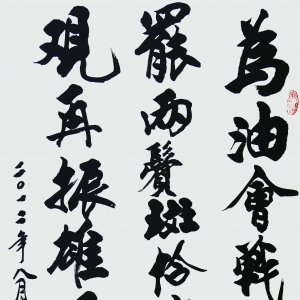 為油會戰
罷兩鬢斑
覌再振雄
二〇一二年八月